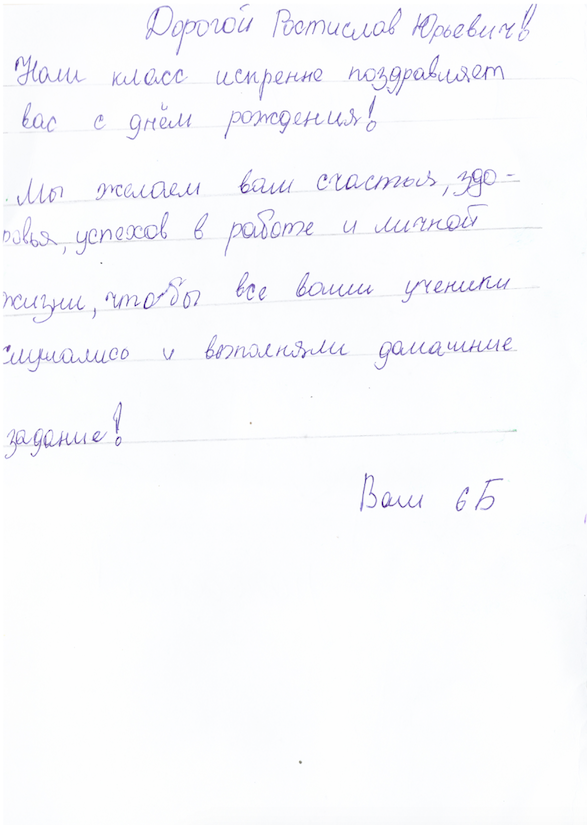 Дорогой Ростислав Юрьевич!
Наш класс искренне поздравляет
вас с днём рождения!
Мы желаем вам счастья, здо-
ровья, успехов в работе и личной
жизни, чтобы все ваши ученики
слушались и выполняли домашние
задание!
Ваш 6Б